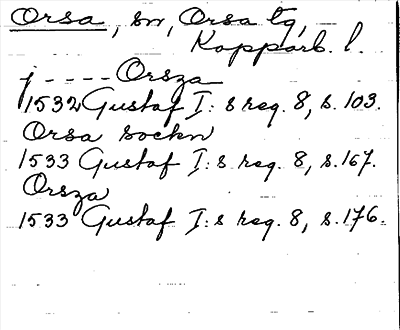 Orsa, sn, Orsa tg,
Kopparb. l.
j - - - - Orsza
1532 Gustaf I: s reg. 8, s. 103.
Orsa sockn
1533 Gustaf I: s reg. 8, s. 167.
Orsza
1533 Gustaf I: s reg. 8, s. 176.